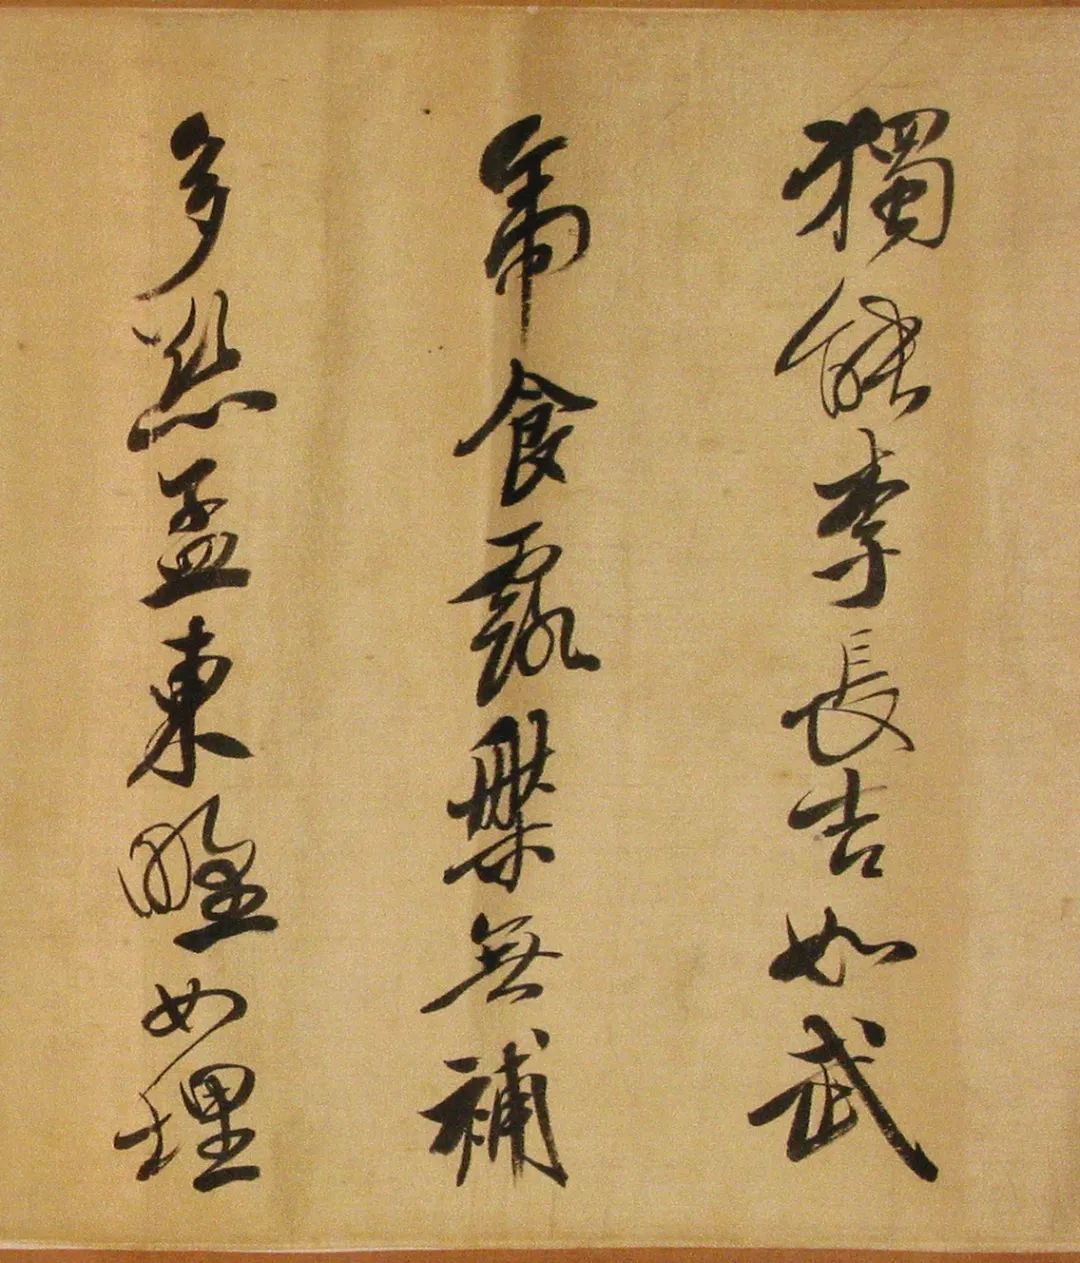 獨能李長吉如武
帝食露槃無補
多慾孟東野如埋